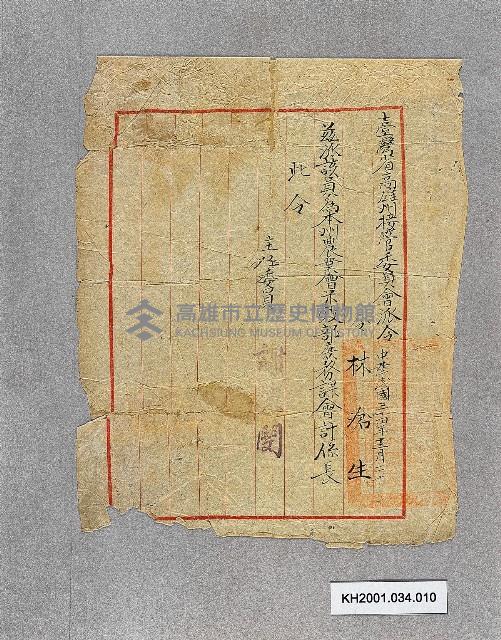 臺灣省高雄州接管委員會派令
中華民國三十四年十二月
令 林滄生
茲派該員為本州農業會米穀部庶務課會計係長
此令
主任委員
謝
閔
高雄市立歷史博物館
KAOHSIUNG MUSEUM OF HISTORY
KH2001.034.010